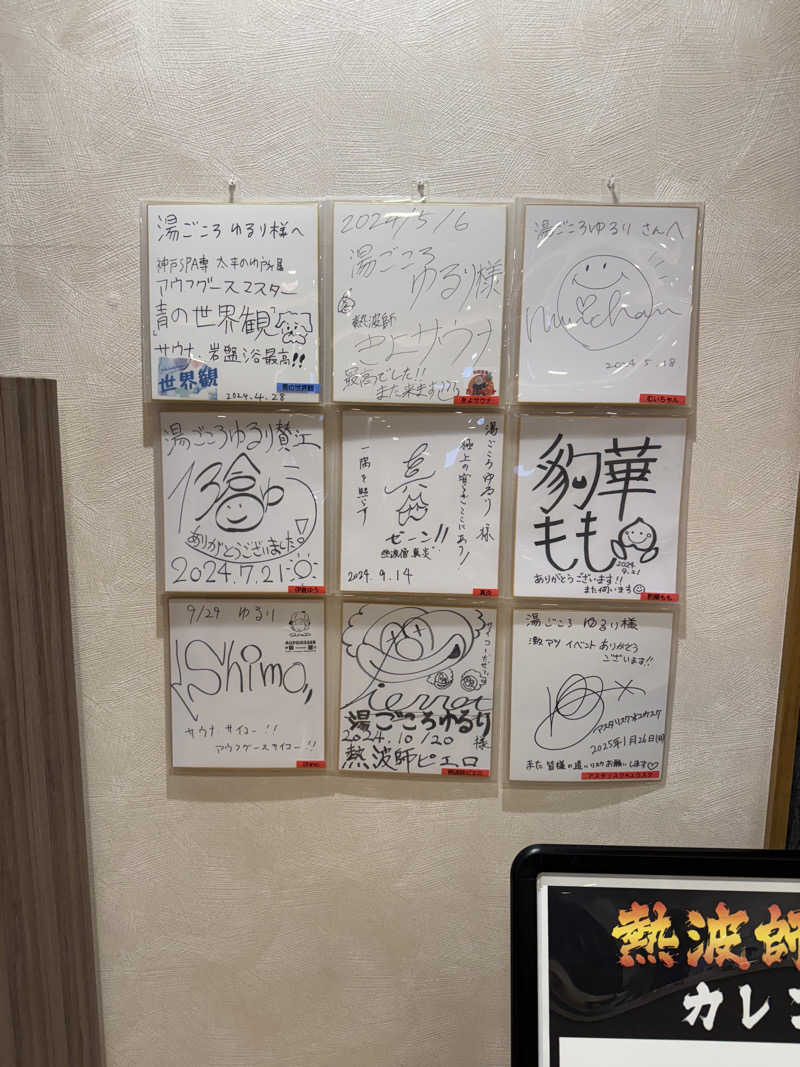 湯ごころ ゆるり様へ
神戸SPA専 太平のゆ
アウフグースマスター
「青の世界観」
サウナ、岩盤浴最高!!
世界観
2024.4.28
青の世界観
2024/5/6
湯ごころ
ゆるり様
熱波師
きよサウナ
最高でした!!
また来ます
きよサウナ
湯ごころゆるり さんへ
muichan
2024.5.18
むいちゃん
湯ごころゆるり賛江
ゆう
ありがとうございました。
2024.7.21
伊倉ゆう
湯ごころゆるり 様
極上の寛ぎここにあり!
真
一隅を照らす
ゼーン!!
熱波僧 真炎
2024.9.14
真炎
豹華
もも
2024.
9.21
ありがとうございます!!
また伺います
豹華もも
9/29 ゆるり
Shimo
サウナ サイコー!!
アウフグースサイコー!!
shimo
サイコーだぜ
ierrot
湯ごころゆるり
2024.10/20 様
熱波師ピエロ
熱波師ピエロ
湯ごころ ゆるり様
激アツ イベント ありがとう
ございます!!
アスタリスク＊コウスケ
2025年1月26日(日)
また 皆様の追いリスクお願いします♡
アスタリスク＊コウスケ
熱波師
カレン